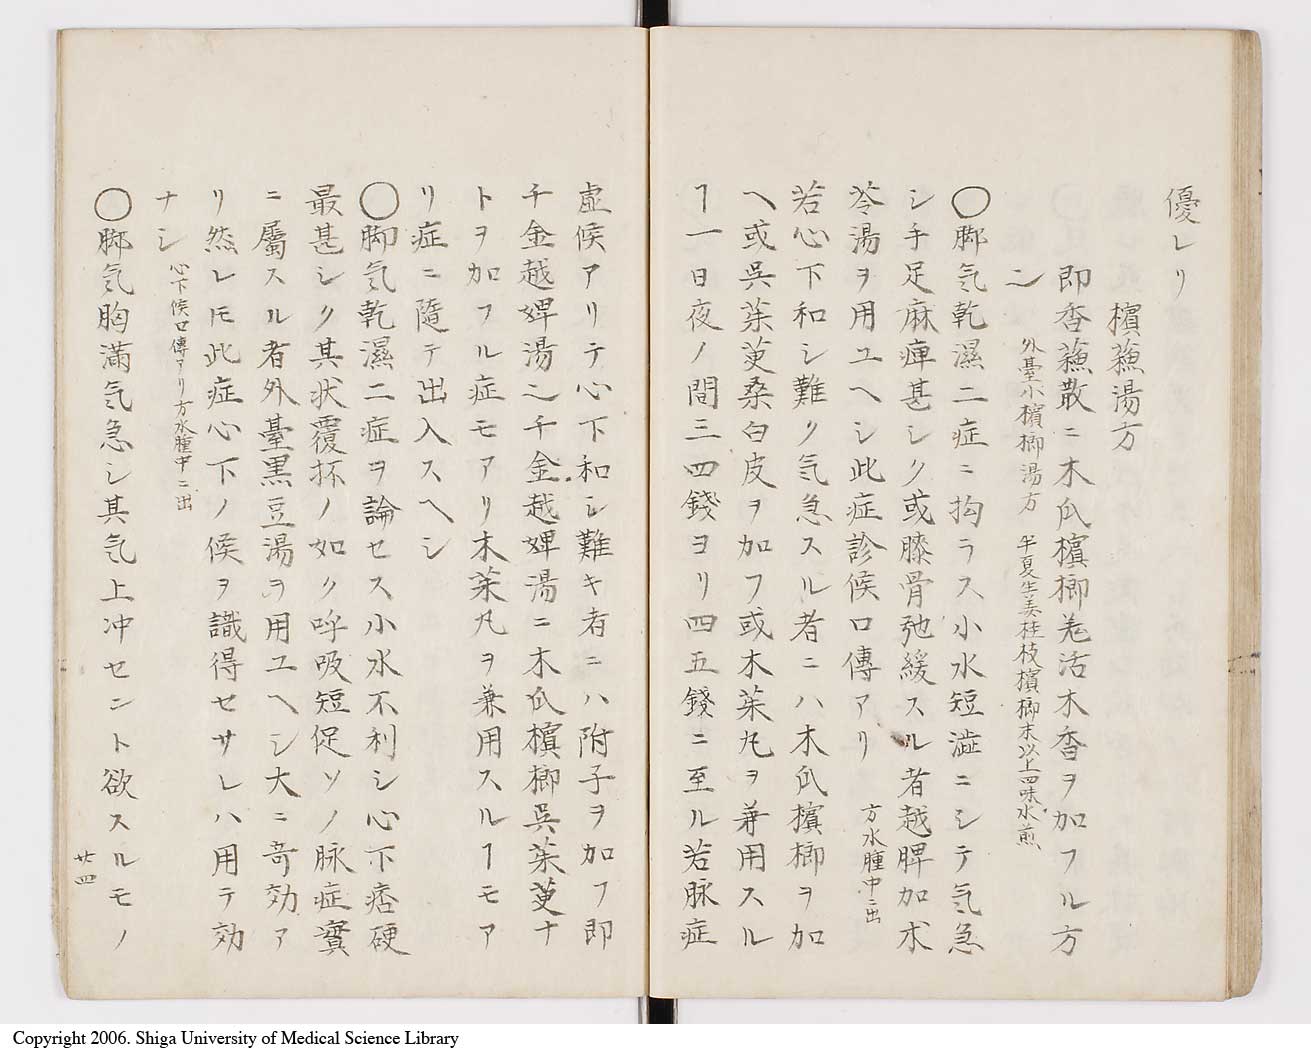 優レリ
檳蘓湯方
即香蘓散ニ木瓜檳榔羗活木香ヲ加フル方
ニ 外臺小檳榔湯方 半夏生姜桂枝檳榔末以上四味水煎
〇脚気乾濕二症ニ拘ラス小水短澁ニシテ気急
シ手足麻痺甚シク或膝骨弛緩スル者越脾加朮
苓湯ヲ用ユヘシ此症診候口傳アリ 方水腫中ニ出
若心下和シ難ク気急スル者ニハ木瓜檳榔ヲ加
ヘ或呉茱萸桑白皮ヲ加フ或木茱丸ヲ兼用スル
ヿ一日夜ノ間三四錢ヨリ四五錢ニ至ル若脉症
虚候アリテ心下和シ難キ者ニハ附子ヲ加フ即
千金越婢湯也千金越婢湯ニ木瓜檳榔呉茱萸ナ
トヲ加フル症モアリ木茱丸ヲ兼用スルヿモア
リ症ニ隨テ出入スヘシ
〇脚気乾濕二症ヲ論セス小水不利シ心下痞硬
最甚シク其状覆抔ノ如ク呼吸短促ソノ脉症實
ニ屬スル者外臺黒豆湯ヲ用ユヘシ大ニ竒効ア
リ然レ𪜈此症心下ノ候ヲ識得セサレハ用テ効
ナシ 心下候口傳アリ方水腫中ニ出
〇脚気胸滿気急シ其気上冲セント欲スルモノ
廿四
Copyright 2006. Shiga University of Medical Science Library